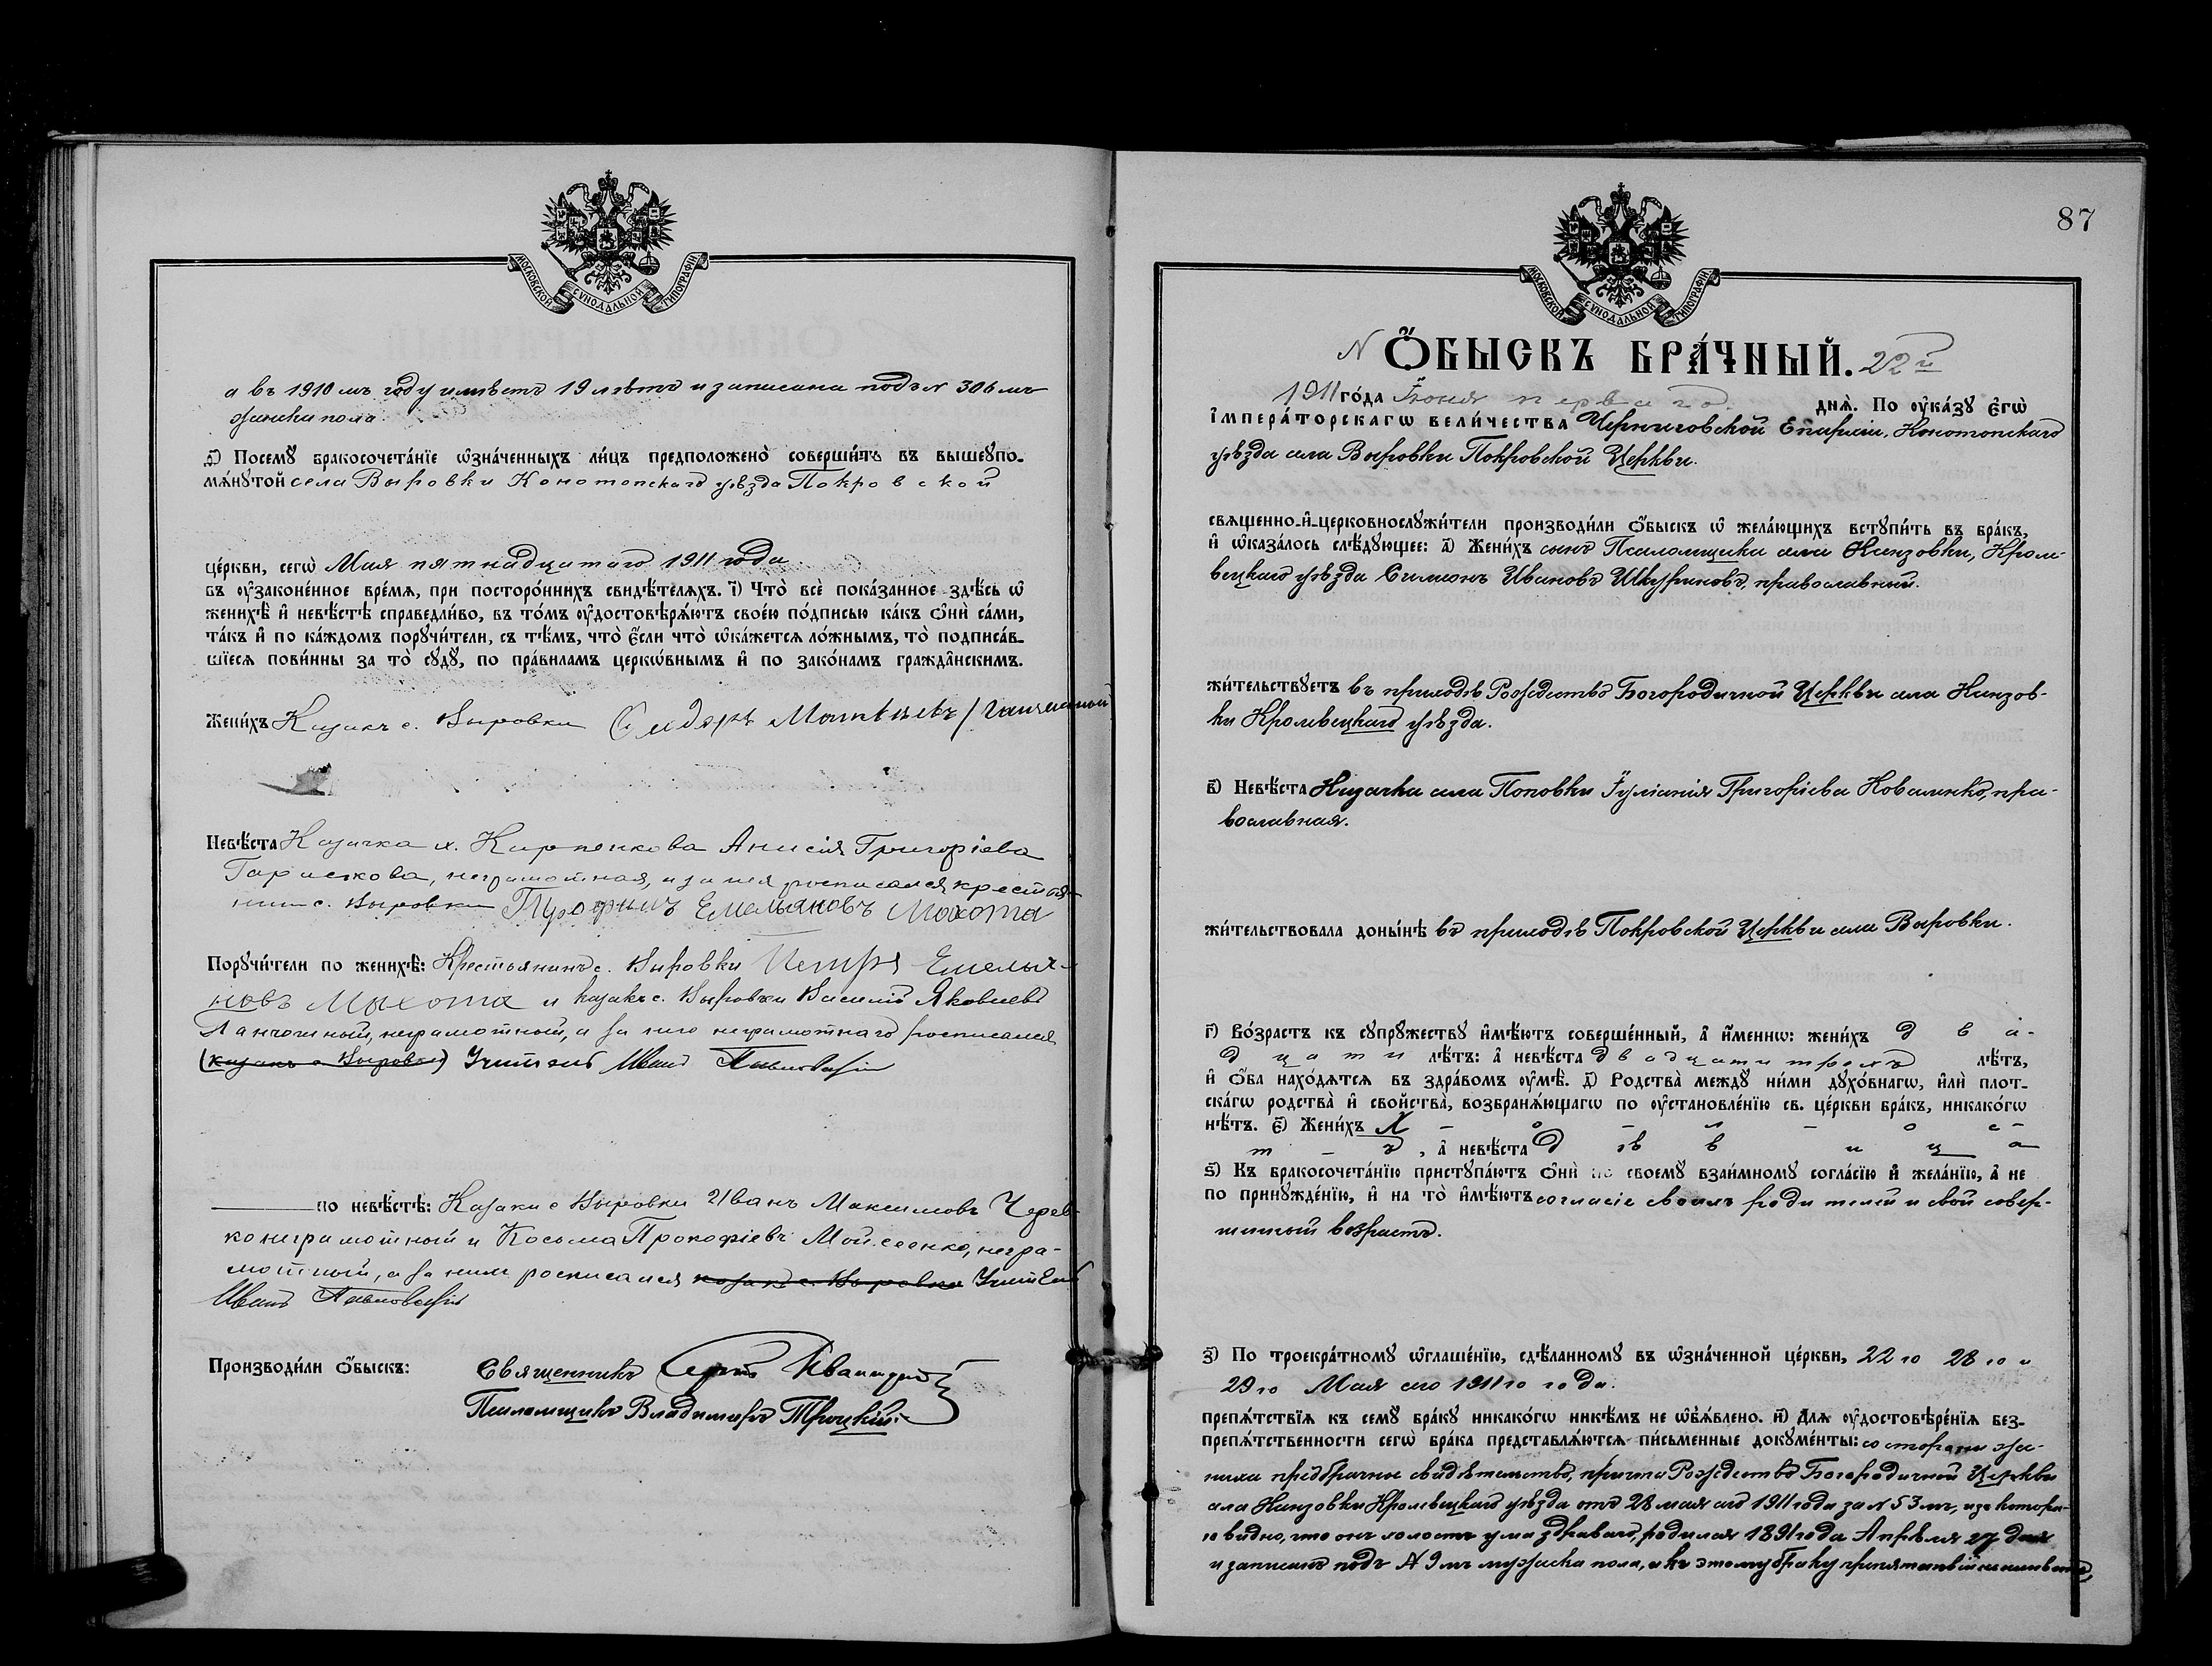 МОСКОВСКОЙ СУНОДАЛЬНОЙ ТИПОГРАФІИ
а въ 1910 мъ году имѣетъ 19 лѣтъ и записана подъ № 306 мъ
женска пола.
д҃) Посемꙋ̀ бракосочета́нїе ѡ҆зна́ченныхъ ли́цъ предположено̀ соверши́ть въ вышеꙋпо-
мѧ́нꙋтой села Выровки Конотопскаго уѣзда Покровской
це́ркви, сегѡ̀ Мая пятнадцатаго 1911 года
въ ᲂу҆зако́ненное вре́мѧ, при посторо́ннихъ свидѣ́телѧхъ. і҃) Что̀ всѐ пока́занное здѣ́сь ѡ҆
женихѣ̀ и҆ невѣ́стѣ справедли́во, въ то́мъ ᲂу҆достовѣрѧ́ютъ свое́ю по́дписью ка́къ ѻ҆нѝ са́ми,
та́къ и҆ по ка́ждомъ порꙋчи́тели, съ тѣ́мъ, что̀ є҆́сли что̀ ѡ҆ка́жетсѧ ло́жнымъ, то̀ подписа́в-
шїесѧ пови́нны за то̀ сꙋдꙋ̀, по пра́виламъ церко́внымъ и҆ по зако́намъ гражда́нскимъ.
Жени́хъ Казакъ с. Выровки Сидоръ Матвѣевъ
Невѣ́ста Казачка х. Карпенкова Анисія Григоріева
неграмотная, а за нея росписался крестья-
нинъ с. Выровки Трофимъ Емельяновъ Махота
Порꙋчи́тели по женихѣ̀: Крестьянинъ с. Выровки Петръ Емелья-
новъ Махота и казакъ с. Выровки Василій Яковлевъ
неграмотный, а за него неграмотнаго росписался
(казакъ с Выровки) Учитель Иванъ
по невѣ́стѣ: Казаки с Выровки Иванъ Максимовъ Черев-
ко неграмотный и Косьма Прокофіевъ Мойсеенко, негра-
мотный, а за ними росписался казакъ с. Выровки Учитель
Иванъ
Производи́ли ѻ҆́быскъ: Священникъ Сергій
Псаломщикъ Владимиръ Троцкій
87
МОСКОВСКОЙ СУНОДАЛЬНОЙ ТИПОГРАФІИ
N Ѻ҆́БЫСКЪ БРА́ЧНЫЙ. 22й
1911 го́да Іюня перваго днѧ̀. По ᲂу҆ка́зꙋ є҆гѡ̀
і҆мпера́торскагѡ вели́чества Черниговской Епархіи, Конотопскаго
уѣзда села Выровки Покровской Церкви.
свѧще́нно-и҆-церковнослꙋжи́тели производи́ли ѻ҆́быскъ ѡ҆ жела́ющихъ встꙋпи́ть въ бра́къ,
и҆ ѡ҆каза́лось слѣ́дꙋющее: а҃) Жени́хъ сынъ Псаломщика села Кинзовки, Кроле-
вецкаго уѣзда Симеонъ Ивановъ Шкуриновъ, православный.
жи́тельствꙋетъ въ приходѣ Рождество Богородичной Церкви села Кинзов-
ки Кролевецкаго уѣзда.
в҃) Невѣ́ста Казачка села Поповки Іуліанія Григоріева Коваленко, пра-
вославная.
жи́тельствовала доны́нѣ въ приходѣ Покровской Церкви села Выровки.
г҃) Во́зрастъ къ сꙋпрꙋ́жествꙋ и҆мѣ́ютъ соверше́нный, а҆ и҆́менно: жени́хъ два-
дцати лѣ́тъ: а҆ невѣ́ста двадцати трехъ лѣ́тъ,
и҆ ѻ҆́ба нахо́дѧтсѧ въ здра́вомъ ᲂу҆мѣ̀. д҃) Родства̀ междꙋ ни́ми дꙋхо́внагѡ, и҆лѝ плот-
ска́гѡ родства̀ и҆ свойства̀, возбранѧ́ющагѡ по ᲂу҆становле́нїю св. це́ркви бра́къ, никако́гѡ
нѣ́тъ. є҃) Жени́хъ Холос-
тъ, а҆ невѣ́ста дѣвица
ѕ҃) Къ бракосочета́нїю пристꙋпа́ютъ ѻ҆нѝ по своемꙋ̀ взаи́мномꙋ согла́сїю и҆ жела́нїю, а҆ не
по принꙋжде́нїю, и҆ на то̀ и҆мѣ́ютъ согласіе своихъ родителей и свой совер-
шенный возрастъ.
з҃) По троекра́тномꙋ ѡ҆глаше́нїю, сдѣ́ланномꙋ въ ѡ҆зна́ченной це́ркви, 22го 28го и
29го Мая сего 1911го года.
препѧ́тствїѧ къ семꙋ̀ бра́кꙋ никако́гѡ никѣ́мъ не ѡ҆б̾ѧ́влено. и҃) Длѧ ᲂу҆достовѣре́нїѧ без-
препѧ́тственности сегѡ̀ бра́ка представлѧ́ютсѧ пи́сьменные докꙋме́нты: со стороны же-
ниха предбрачное свидѣтельство, причта Рождество Богородичной Церкви
села Кинзовки Кролевецкаго уѣзда отъ 28 мая сего 1911 года за № 53 мъ, изъ котора-
го видно, что онъ холостъ ума здраваго, родился 1891 года Апрѣля 27 дня
и записанъ подъ № 9 мъ мужска пола, и къ этому браку препятствій не имѣется,